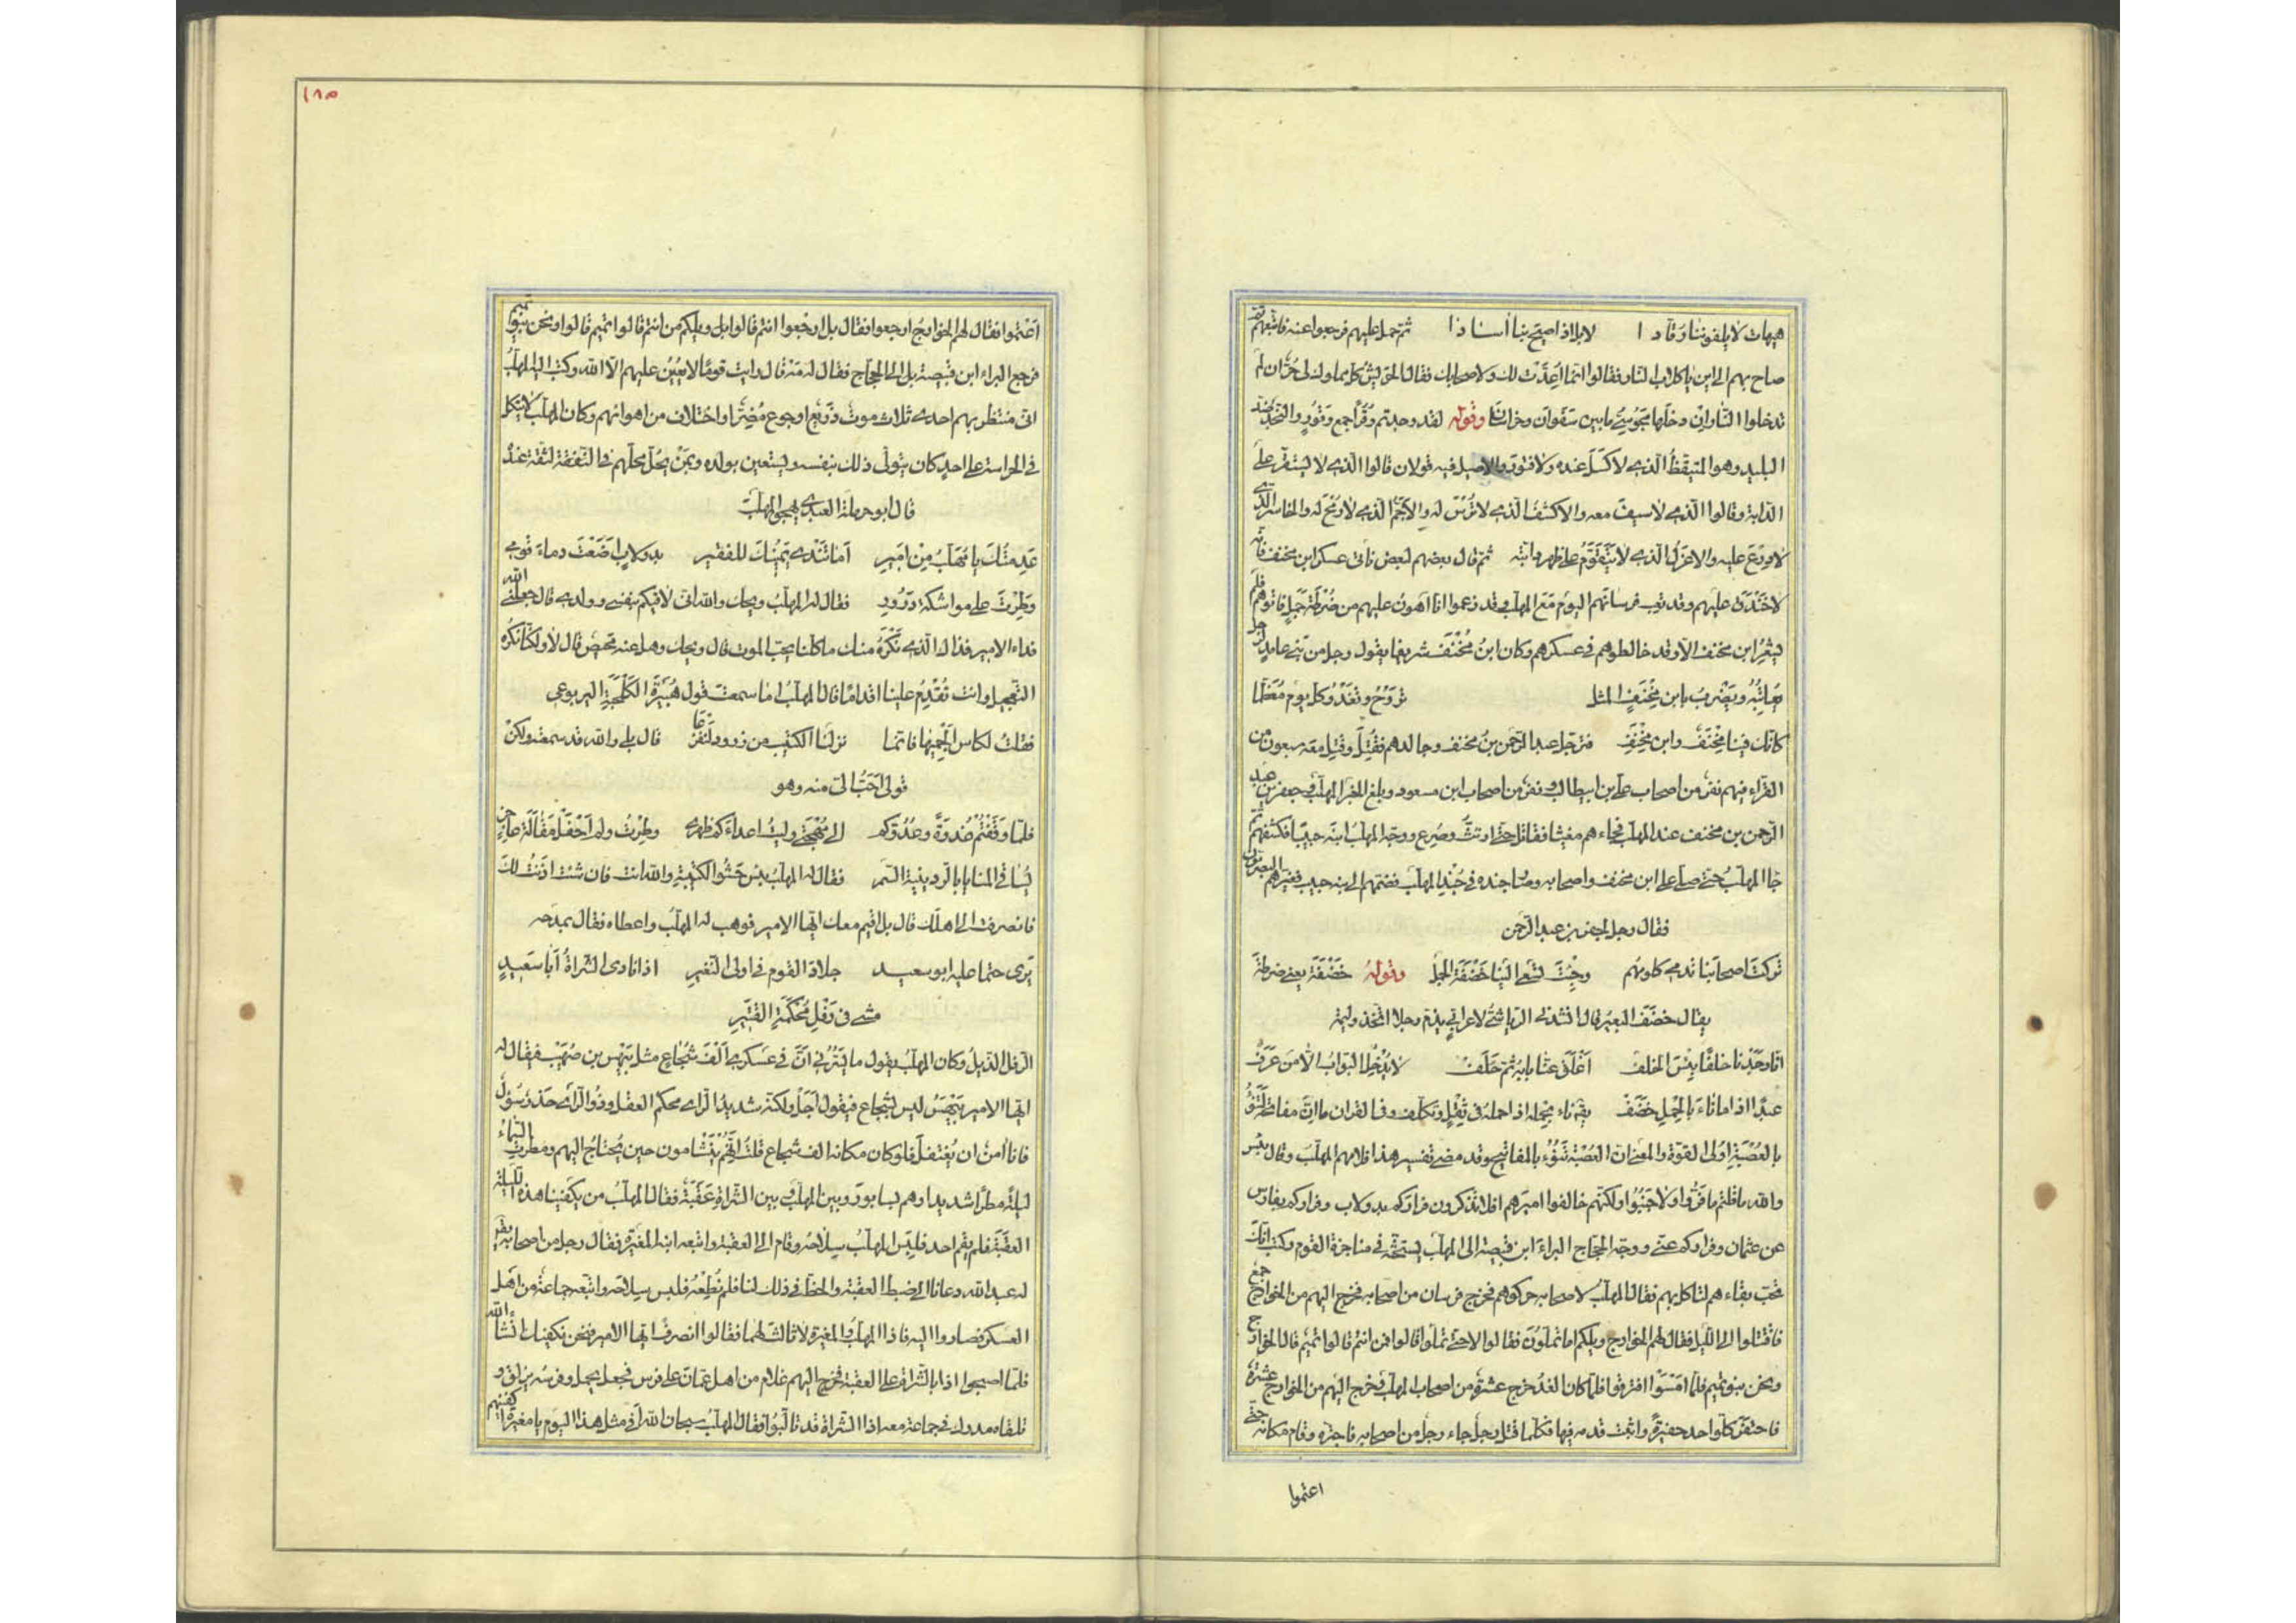 هيهات لا يلفوننا رقادا لا بل اذا صيح بنا أسادا ثم حمل عليهم فرجعوا عنه فاتبعهم ثم
صاح بهم الى اين يا كلاب النار فقالوا انما اعدت لك ولاصحابك فقال الحريش كل مملوك لى حر ان لم
تدخلوا النار ان دخلها مجوسى ما بين سفوان وخراسان وقوله لقد وجدتم وقرا جمع وقور والنجد ضد
البليد وهو المتيقظ الذى لا كسل عنده ولا فتور والاميل فيه قولان قالوا الذى لا يستقر على
الدابة وقالوا الذى لا سيف معه والاكشف الذى لا ترس له والاجم الذى لا رمح له والحاسر الذى
لا درع عليه والاعزل الذى لا يتقوم على ظهر دابته ثم قال بعضهم لبعض نأتى عسكر ابن مخنف فانه
لا خندق عليهم وقد تعب فرسانهم اليوم مع المهلب وقد زعموا انا اهون عليهم من ضرطة جمل فاتوهم فلم
يشعر ابن مخنف الا وقد خالطوهم فى عسكرهم وكان ابن مخنف شريفا يقول رجل من بنى عامر لرجل
يعاتبه ويضرب بابن مخنف المثل تروح وتغدو كل يوم معظما
كانك فينا مخنف وابن مخنف فترجل عبد الرحمن بن مخنف وجالدهم فقتل وقتل معه سبعون من
القراء فيهم نفر من اصحاب على بن ابيطالب ونفر من اصحاب ابن مسعود وبلغ الخبر المهلب وجعفر بن عبد
الرحمن بن مخنف عند المهلب فجاءهم مغيثا فقاتل حتى ارتث وصرع ووجه المهلب ابنه حبيبا فكشفهم ثم
جاا المهلب حتى صلى على ابن مخنف واصحابه وصار جنده فى جند المهلب فضمهم الى ابنه حبيب فعيرهم البصريون
فقال رجل لجعفر بن عبد الرحمن
تركت اصحابنا تدمى كلومهم وجئت تسعى الينا خضفة الجمل وقوله خضفة يعنى ضرطة
يقال خضف البعير قال انشدنى الرياشى لاعرابى يذم رجلا اتخذ وليمة
انا وجدنا خلفا بئس الخلف اغلق عنا بابه ثم حلف لا يدخل البواب الا من عرف
عبدا اذا ما ناء بالحمل خضف يقال ناء بحمله اذا حمله فى ثقل وتكلف وفى القران ما ان مفاتحه لتنوء
بالعصبة اولى القوة والمعنى ان العصبة تنوء بالمفاتيح وقد مضى تفسير هذا فلامهم المهلب وقال بئس
والله ما قلتم ما فروا ولا جبنوا ولكنهم خالفوا اميرهم افلا تذكرون فراركم بدولاب وفراركم بفارس
عن عثمان وفراركم عنى ووجه الحجاج البراء ابن قبيصة الى المهلب يستحثه فى مناجزة القوم وكتب انك
تحب بقاءهم لتاكل بهم فقال المهلب لاصحابه حركوهم فخرج فرسان من اصحابه فخرج اليهم من الخوارج جمع
فاقتتلوا الى الليل فقال لهم الخوارج ويلكم اما تملون فقالوا لا حتى تملوا قالوا فمن انتم قالوا تميم قالت الخوارج
ونحن بنو تميم فلما امسوا افترقوا فلما كان الغد خرج عشرة من اصحاب المهلب وخرج اليهم من الخوارج عشرة
فاحتفر كل واحد حفيرة واثبت قدمه فيها فكلما قتل رجل جاء رجل من اصحابه فاجتره وقام مكانه حتى
اعتموا
١٨٥
اعتموا فقال لهم الخوارج ارجعوا فقال بل ارجعوا انتم قالوا بل ويلكم من انتم قالوا تميم قالوا ونحن بنو تميم
فرجع البراء ابن قبيصة بل الى الحجاج فقال له مه قال رايت قوما لا يعين عليهم الا الله وكتب اليه المهلب
انى منتظر بهم احدى ثلاث موت ذريع او جوع مضر او اختلاف من اهوائهم وكان المهلب لا يتكل
فى الحراسة على احد كان يتولى ذلك بنفسه ويستعين بولده وبمن يحل محلهم فى الثقة عنده
قال ابو حرملة العبدى يهجو المهلب
عدمتك يا مهلب من امير اما تندى يمينك للفقير بدولاب اضعت دماء قومى
وطرت على مواشكة درور فقال له المهلب ويحك والله انى لاقيكم بنفسى وولدى قال جعلنى الله
فداء الامير فذاك الذى نكره منك ما كلنا يحب الموت قال ويحك وهل عنه محيص قال لا ولكنا نكره
التعجيل وانت تقدم علينا اقداما قال المهلب اما سمعت قول هبيرة الكلحبة اليربوعى
فقلت لكاس الجميها فانما نزلنا الكثيب من زرود لنفزعا قال بلى والله قد سمعته ولكن
قولى احب الى منه وهو
فلما وقفتم غدوة وعدوكم الى مهجتى وليت اعداءكم ظهرى وطرت ولم احفل مقالة عاجز
يساقى المنايا بالردينية السمر فقال له المهلب بئس حشو الكتيبة والله انت فان شئت اذنت لك
فانصرفت الى اهلك قال بل اقيم معك ايها الامير فوهب له المهلب واعطاه فقال يمدحه
يرى حتما عليه ابو سعيد جلاد القوم فى اولى النفير اذا نادى الشراة ابا سعيد
مشى فى رفل محكمة القتير
الرفل الذيل وكان المهلب يقول ما يسرنى ان فى عسكرى الف شجاع مثل بيهس بن صهيب فيقال له
ايها الامير بيهس ليس بشجاع فيقول اجل ولكنه شديد الراى محكم العقل وذو الراى حذر سؤول
فانا امن ان يغتفل فلو كان مكانه الف شجاع قلت انهم ينشامون حين يحتاج اليهم ومطرت السماء
ليلة مطرا شديدا وهم بسابور وبين المهلب وبين الشراة عقبة فقال المهلب من يكفينا هذه الليلة
العقبة فلم يقم احد فلبس المهلب سلاحه وقام الى العقبة واتبعه ابنه المغيرة فقال رجل من اصحابه يقال
له عبد الله دعانا الى ضبط العقبة والحظ فى ذلك لنا فلم نطعه فلبس سلاحه واتبعه جماعة من اهل
العسكر فصاروا اليه فاذا المهلب والمغيرة لا ثالث لهما فقالوا انصرف ايها الامير فنحن نكفيك ان شاء الله
فلما اصبحوا اذا بالشراة على العقبة فخرج اليهم غلام من اهل عمان على فرس فجعل يحمل وفرسه يزلق و
تلقاه مدرك فى جماعة معه اذا الشراة قد تالبوا فقال المهلب سبحان الله افى مثل هذا اليوم يا مغيرة اكفنيهم